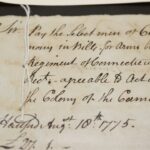 Sir
Pay the Select men of
in Bills, for Arms
Regiment of Connecticut
agreable to Act
the Colony of the Connec
Hartford Augt 18th 1775.